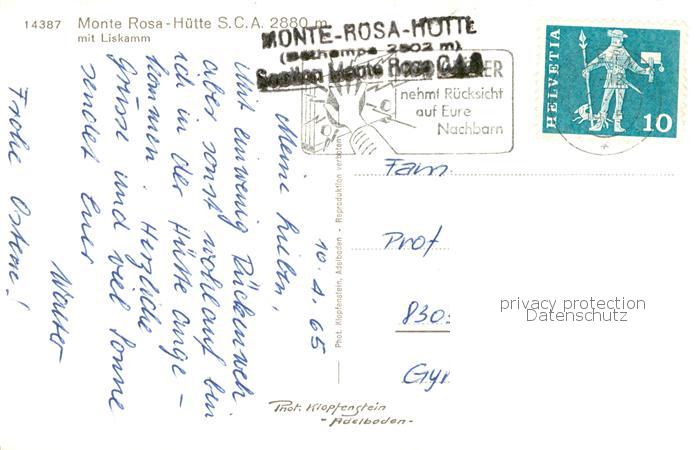 14387 Monte Rosa-Hütte S.C.A. 2880 m
mit Liskamm
MONTE-ROSA-HÜTTE
(Bethemps 2802 m)
Section Monte Rosa C.A.S.
nehmt Rücksicht
auf Eure
Nachbarn
HELVETIA
10
10. 4. 65
Meine Lieben,
Mit einwenig Rückenweh
aber sonst wohlauf bin
ich in der Hütte ange-
kommen. Herzliche
Grüsse und viel Sonne
sendet Euer
Walter
Frohe Ostern!
Phot. Klopfenstein, Adelboden - Reproduktion verboten
Fam.
Prof
830
Gyr
privacy protection
Datenschutz
Phot. Klopfenstein
- Adelboden -